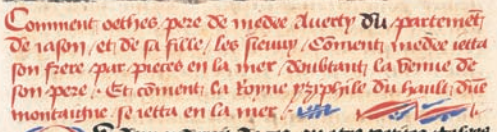 Comment oethes pere de medee Auerty du partement
de iason / et de sa fille / les sieuuy / Coment medee ietta
son frere par pieces en la mer / doubtant la venue de
son pere / Et coment la Royne yzyphile du hault dune
montaigne se ietta en la mer /